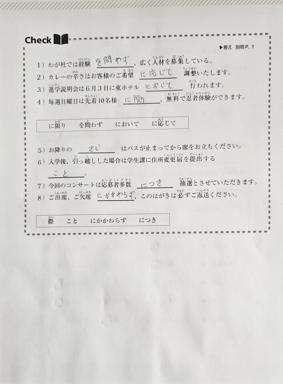 Check
▶答え 別冊P. 1
1）わが社では経験 を問わず 、広く人材を募集している。
2）カレーの辛さはお客様のご希望 に応じて 調整いたします。
3）進学説明会は６月３日に東ホテル において 行われ
4）毎週日曜日は先着10名様 に限り 、無料で忍者体験ができます。
に限り を問わず において に応じて
5）お降りの さい はバスが止まってから席をお立ちください。
6）入学後、引っ越しした場合は学生課に住所変更届を提出する
こと 。
7）今回のコンサートは応募者多数 につき 抽選とさせていただきます。
8）ご出席、ご欠席 にかかわらず 、このはがきは必ずご返送ください。
際 こと にかかわらず につき